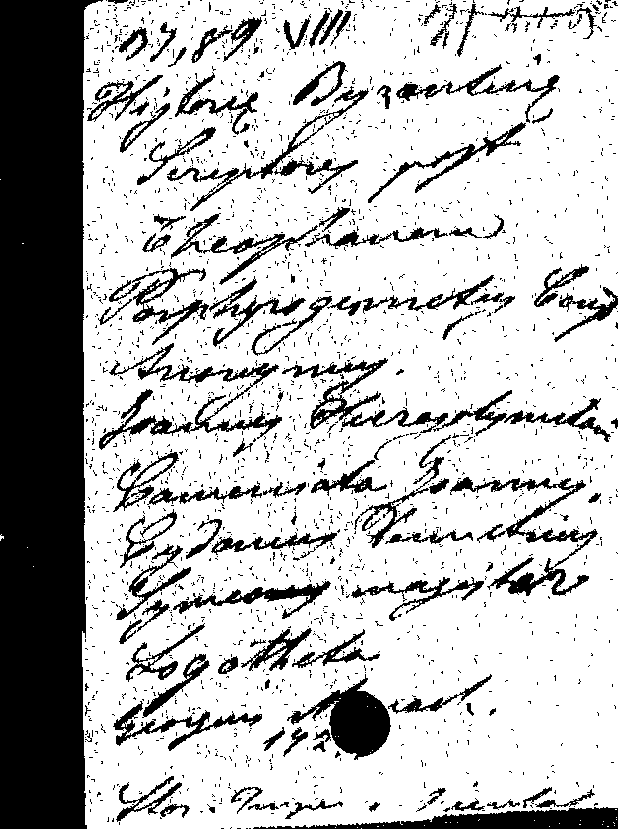 37,89 VIII
Historię Byzantinę
Scriptores post
Theophanem
Porphyrogennetus Const
Anonymus.
Joannis Hierosolymitani
Cameniata Joannes.
Cydonius Demetrius
Symeon magister
Logotheta
Georgius